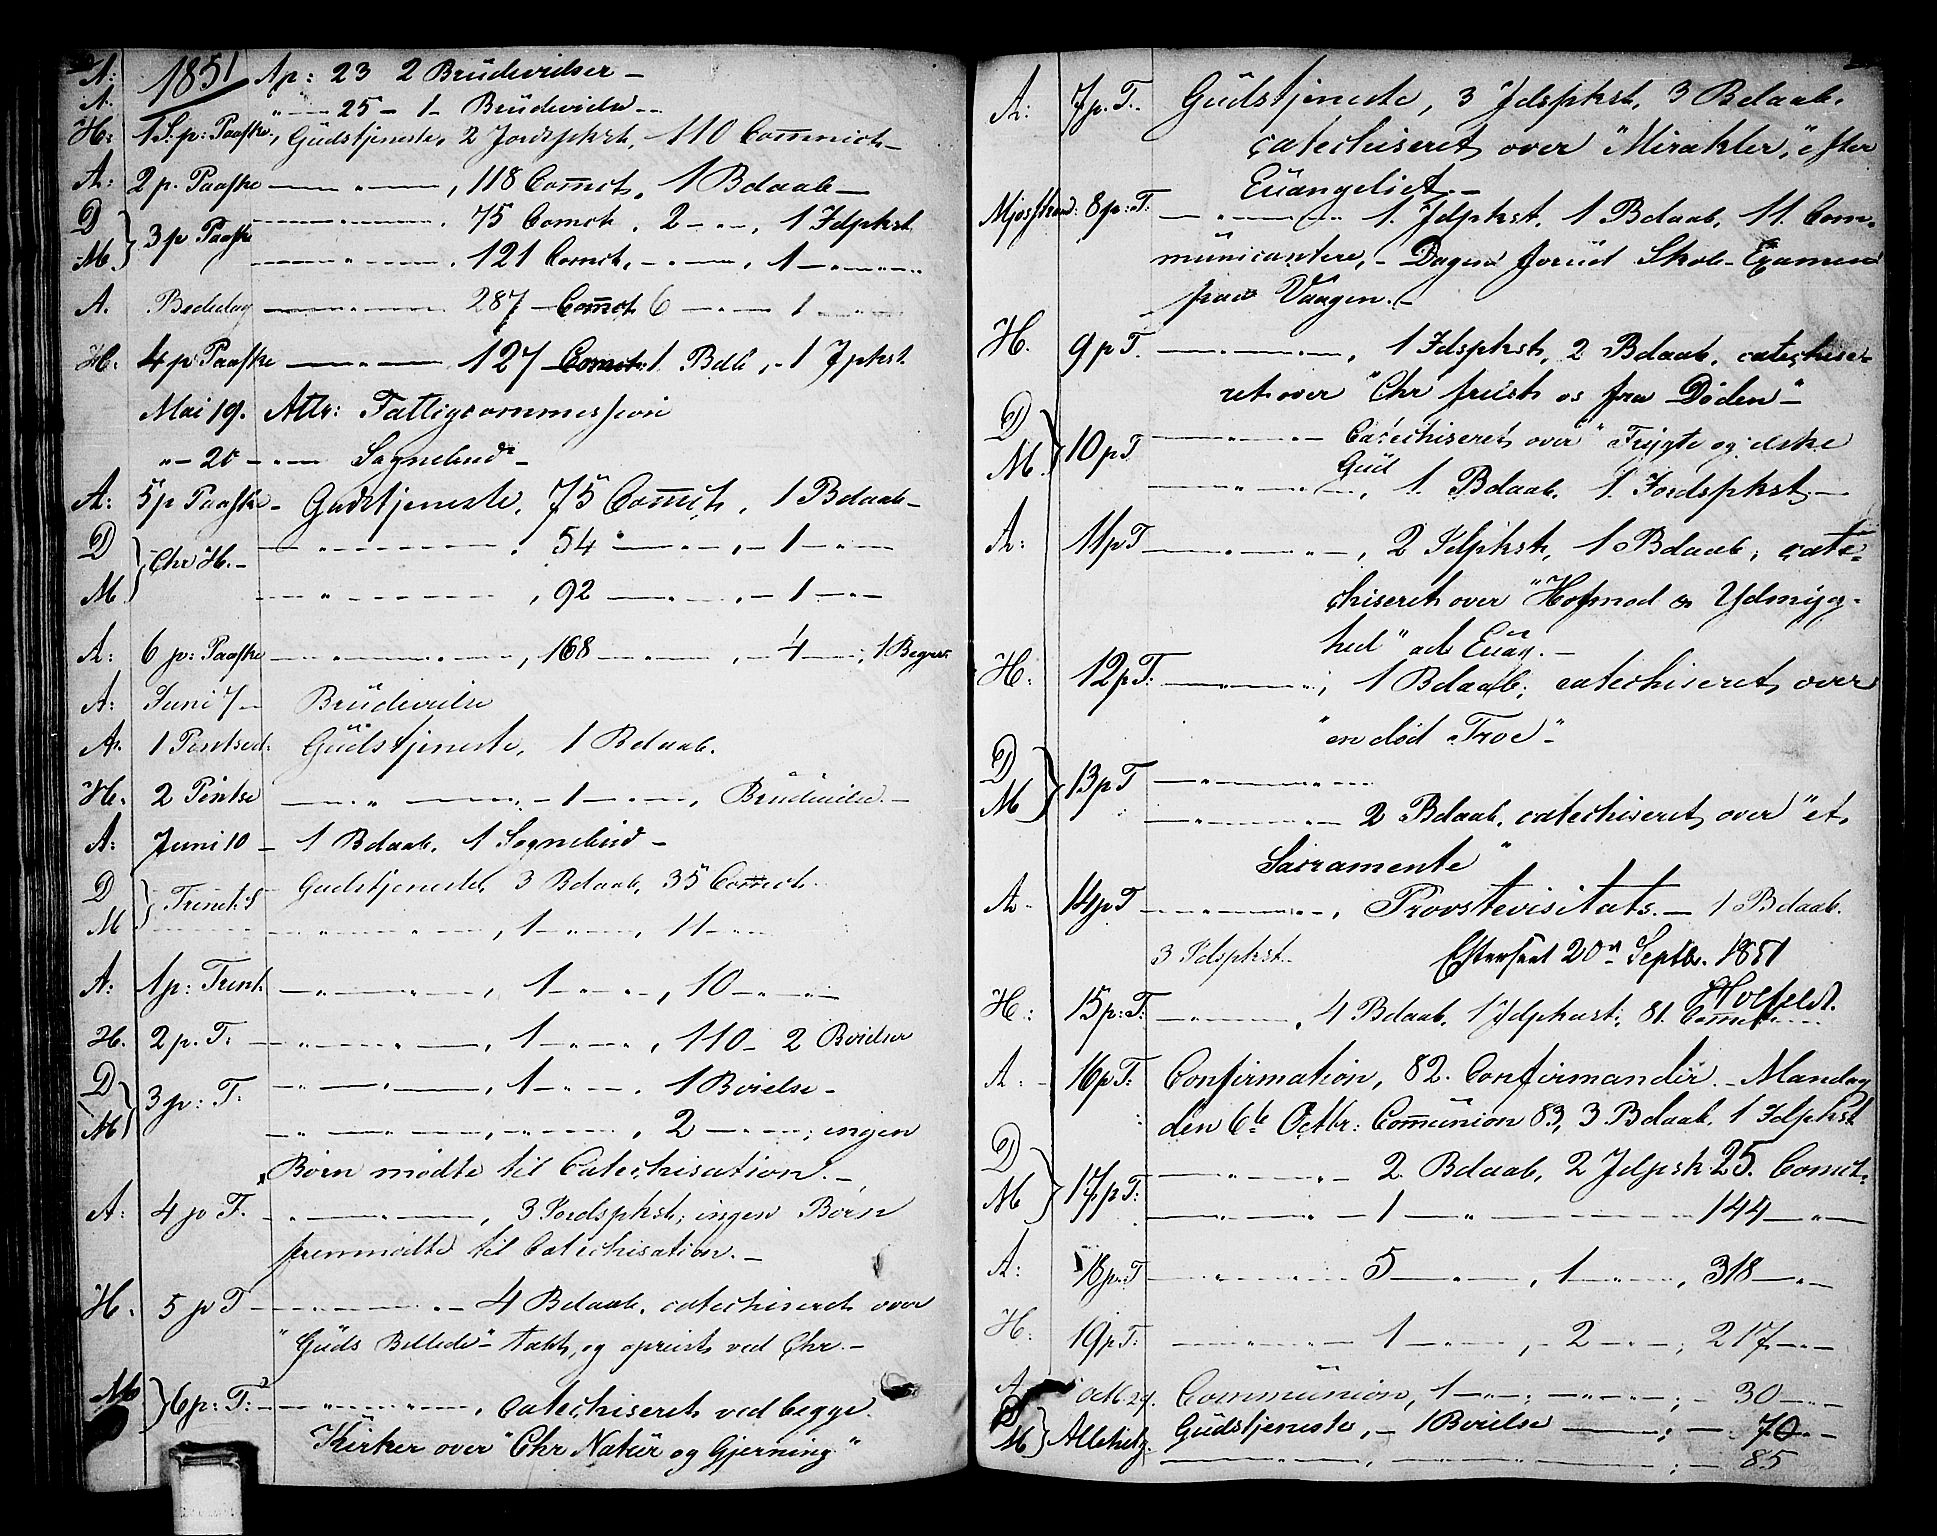 A: 1851 Ap: 23 2 Brüdevielser —
A. " — 25 – 1 – Brüdevielse --
H: 1 S. p: Paaske, Gudstjeneste, 2 Jordspkst, 110 Com̅nict —
A: 2 p. Paaske —"—, 118 Com̅ct, 1 Bdaab —
D } 3 p Paaske —"—. 75 Comct, 2 — " —, 1 Jdpkst
M. —"—. 121 Comct, — " —, 1 — " —
A. Bededag —"— 287 — Com̅ct 6 — " — 1 — " —
H. 4 p: Paaske —"— 127 — Comct 1. Bdb, - 1 Jpkst
Mai 19. Attr: Fattigcommession
" – 20 – " — Sognebud –
A: 5 p Paaske – Gudstjeneste, 75 Com̅ct, 1 Bdaab –
D } Chr H. – —"—, 54 — " —, – 1 — " —
M —"—, 92 — " —, – 1 — " —
A: 6 p: Paaske —"—, 168 — " —, – 4 — " —, 1 Begrav:
A: Juni 7 – Brüdevielse
A. 1 Pintsed: Güdstjeneste, 1 Bdaab.
H. 2 Pintse — " —, – 1 — " —, Brüdevielse. –
A: Juni 10 – 1 Bdaab, 1 Sognebud –
D } Trinit: S Gudstjeneste, 3 Bdaab, 35 Comct.
M —"—, 1 — " —, 11 — " —
A: 1 p: Trinit. —"—, 1 — " —, 10 — " —
H. 2 p. T: —"—, 1 — " —, 110 – 2 Bvielser
D } 3 p: T: —"—, 1 — " —. 1 Bvielse –
M —"—, — " —, 2 — " —; ingen
Børn mødte til Catechisation. –
A: 4 p T. —"—, 3 Jordspkst; ingen Børn
fremmødte til Catechisation. –
H. 5 p T – —"— – 4 Bdaab, catechiseret over
"Güds Billede" – tabt, og opreist ved Chr. –
M } 6 p: T: – —"—, Catechiseret ved begge
Kirker over "Chr Natür og Gjerning"
A: 7 p. T.. Güdstjeneste, 3 Jdspkst, 3 Bdaab.
catechiseret over "Mirakler," efter
Evangeliet. –
Mjosstrand: 8 p: T: —"— 1. Jdpkst, 1 Bdaab, 11. Com-
münicantere, – Dagen forüd Skole-Examen
paa Vaagen. –
H. 9 p T. —"—, 1 Jdspkst, 2 Bdaab, catechise-
ret over "Chr frelst os fra Døden" –
D } 10 p T —"— Catechiseret over "Frygte og elske
Güd
M. —"—, 1. Bdaab, 1 Jordspkst. –
A: 11 p T —"—, 2 Jdpkst, 1 Bdaab; cate-
chiseret over "Hofmod & Ydmyg-
hed" ad Evag. –
H: 12 p T: —"—; 1 Bdaab; catechiseret over
"en død Troe" –
D } 13 p T —"—
M —"— 2 Bdaab, catechiseret over "et
Sacramente"
A – 14 p T —"—, Provstevisitats. – 1 Bdaab.
3 Jdspkst. Efterseet 20de Septbr. 1851
H: 15 p: T: —"—, 4 Bdaab, 1 Jdpkust:, 81. Com̅ct
A: – 16 p T: Confirmation, 82. Confirmander. – Mandag
den 6te Octbr: Com̅ünion 83, 3 Bdaab, 1 Jdpkst
D } 17 p T: —"— 2 Bdaab, 2 Jdpsk 25. Comct.
M —"— 1 — " — 144 — " —
A: 18 p. T —"— 5 — " —, 1 — " —, 318 — " —
H: 19 p T: —"— 1 — " —, – 2 — " —; 217 — " —
A Octb. 29. Commünion, 1 — " —; — " —; – 30 — " —
M } Allehelg. Güdstjeneste, – 1 Bvielse —; — 70 — " —
—"—, — " —; – 85